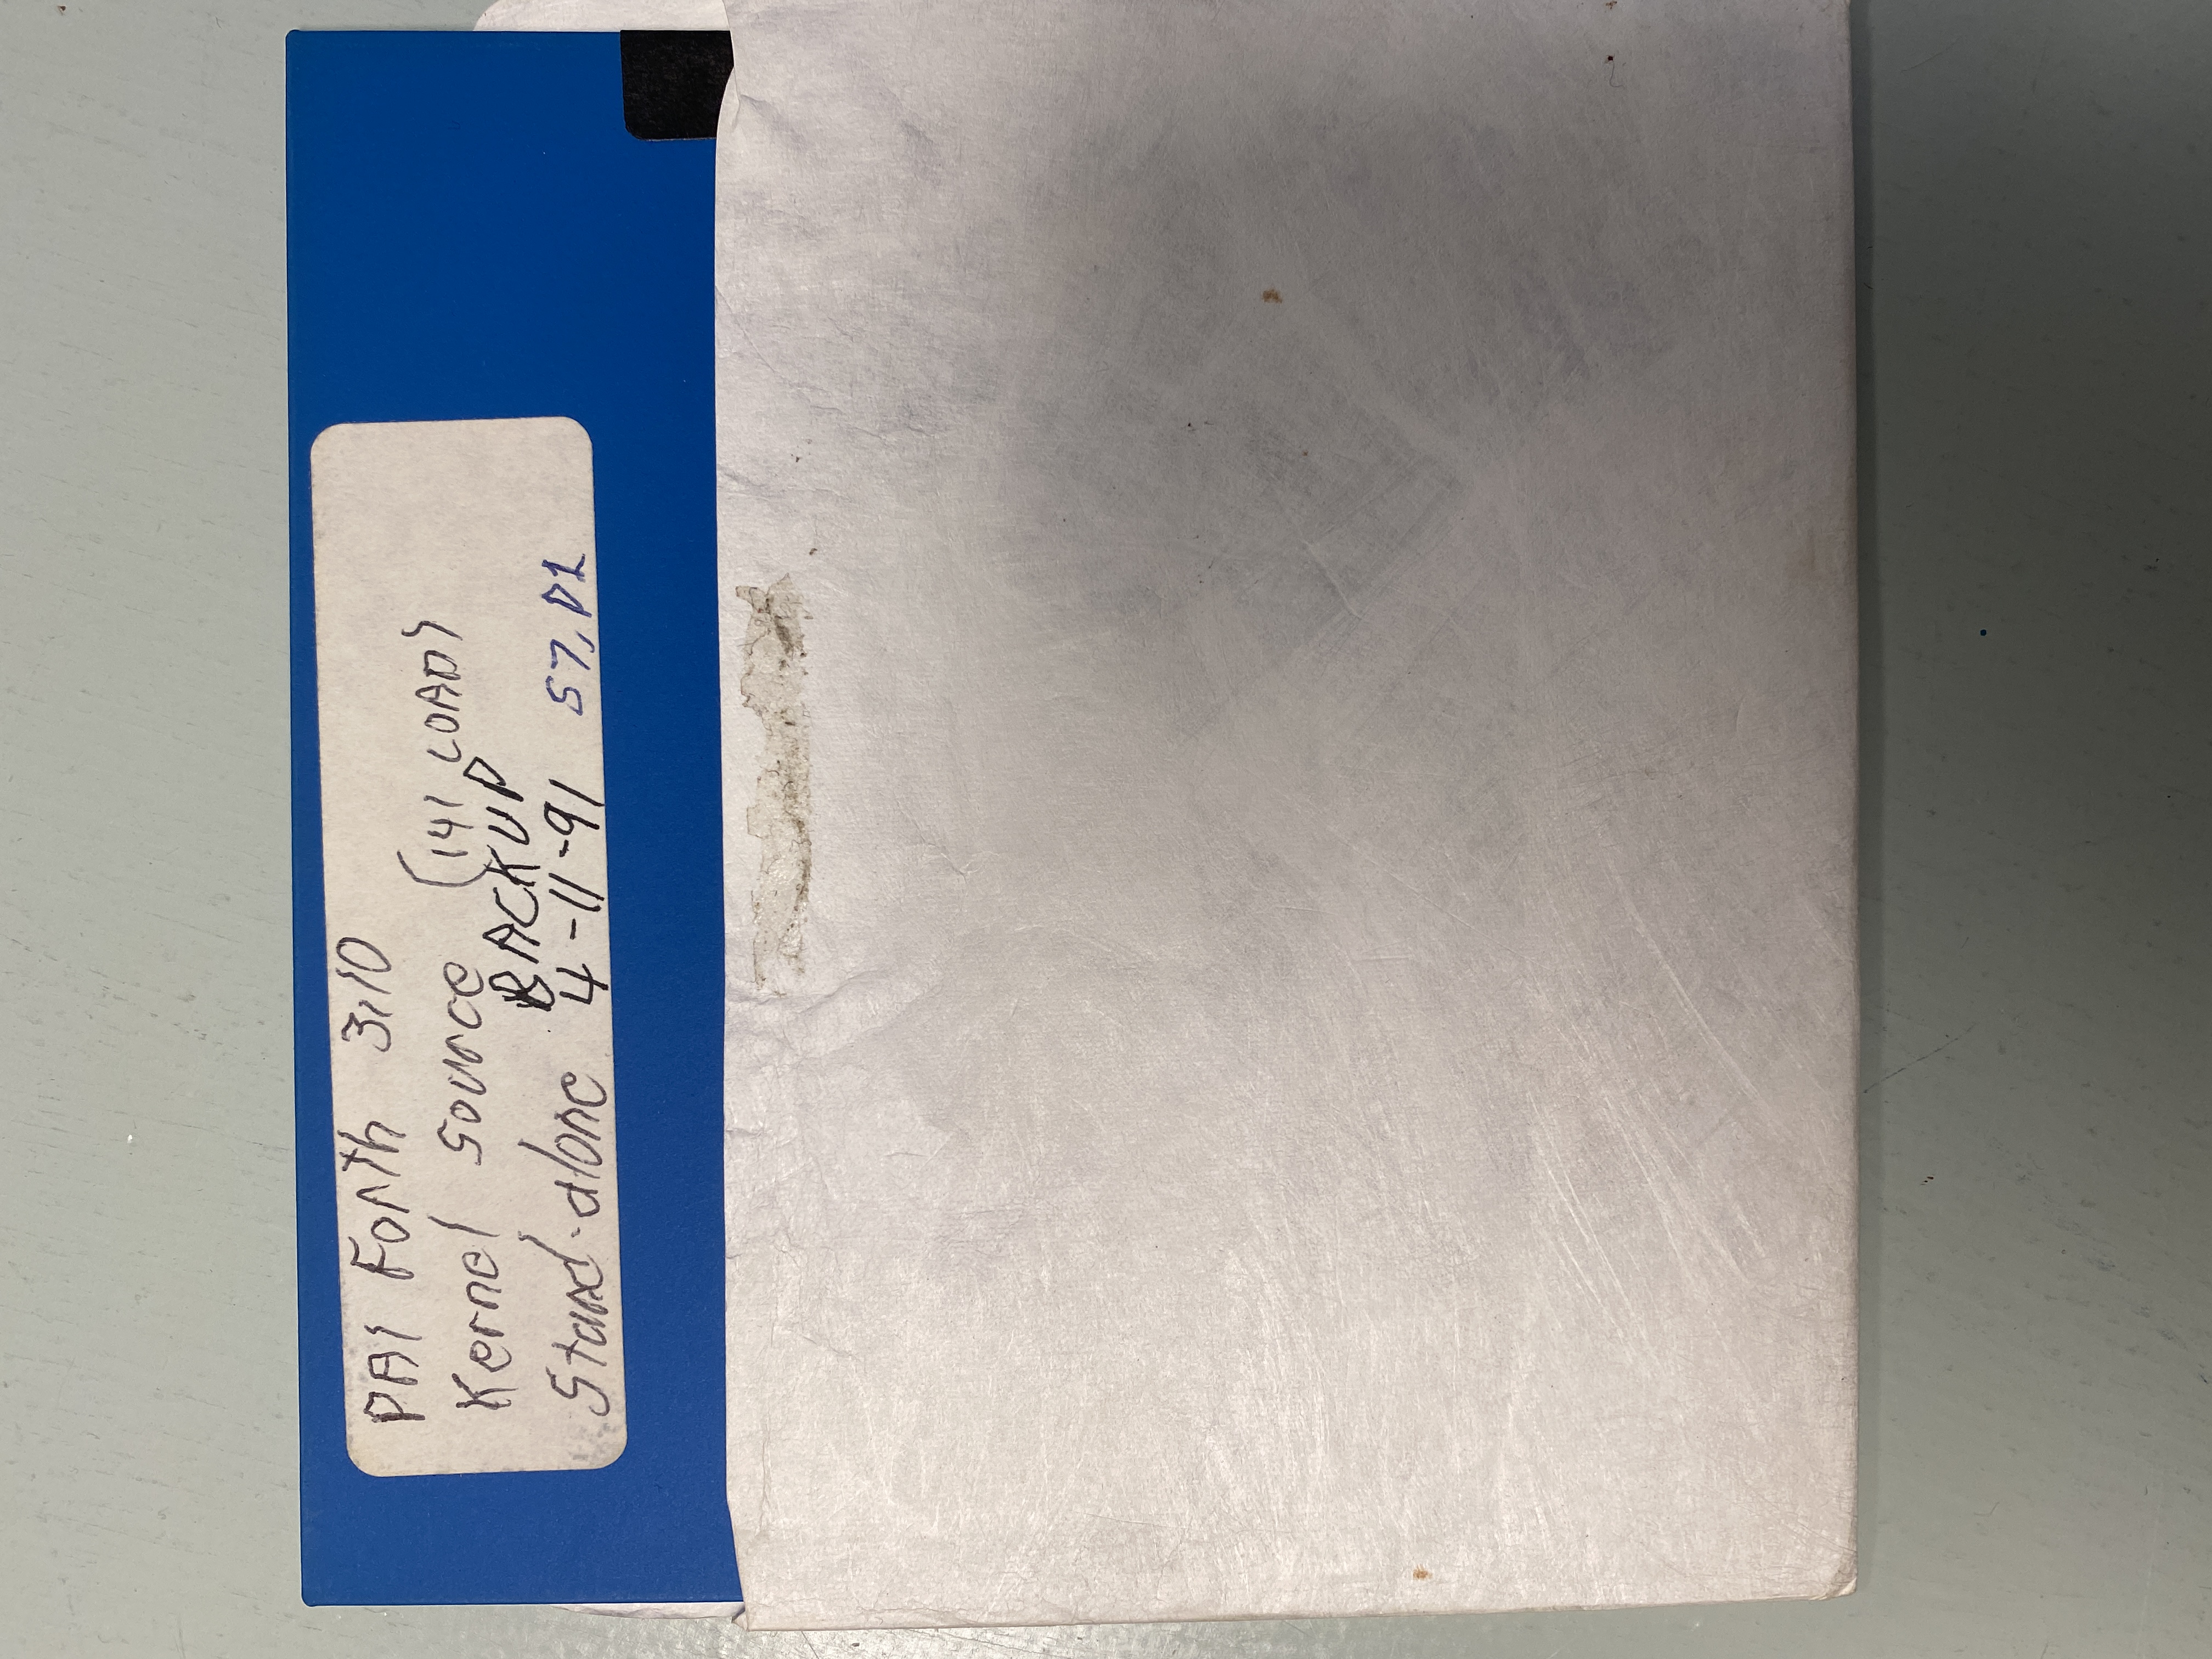 PAI Forth 3.10
Kernel Source (141 LOAD)
BACKUP
Stand-alone 4-11-91 S7, D1